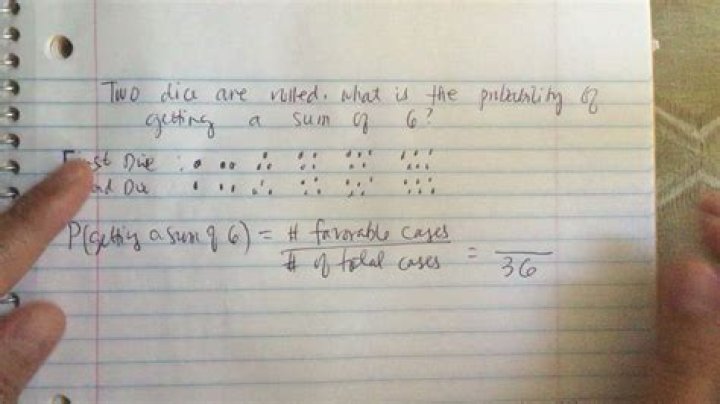 Two dice are rolled. What is the probability of
getting a sum of 6?
First Die :
nd Die
P(getting a sum of 6) = # favorable cases
# of total cases = 
36